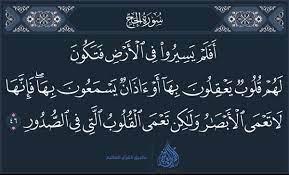 سُورَةُ الحَجِّ
أَفَلَمْ يَسِيرُوا۟ فِى ٱلْأَرْضِ فَتَكُونَ
لَهُمْ قُلُوبٌ يَعْقِلُونَ بِهَآ أَوْ ءَاذَانٌ يَسْمَعُونَ بِهَا ۖ فَإِنَّهَا
لَا تَعْمَى ٱلْأَبْصَٰرُ وَلَٰكِن تَعْمَى ٱلْقُلُوبُ ٱلَّتِى فِى ٱلصُّدُورِ ٤٦